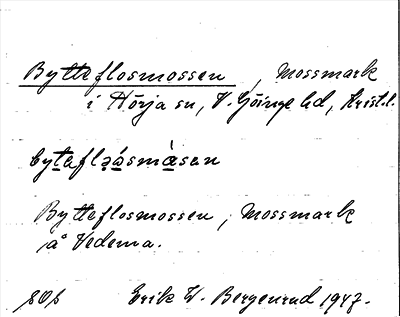 Bytteflosmossen, Mossmark
i Hörja sn, V. Göinge hd, Krist. l.
Bytteflosmossen, Mossmark
å Vedema.
Erik W. Bergenrud 1947.